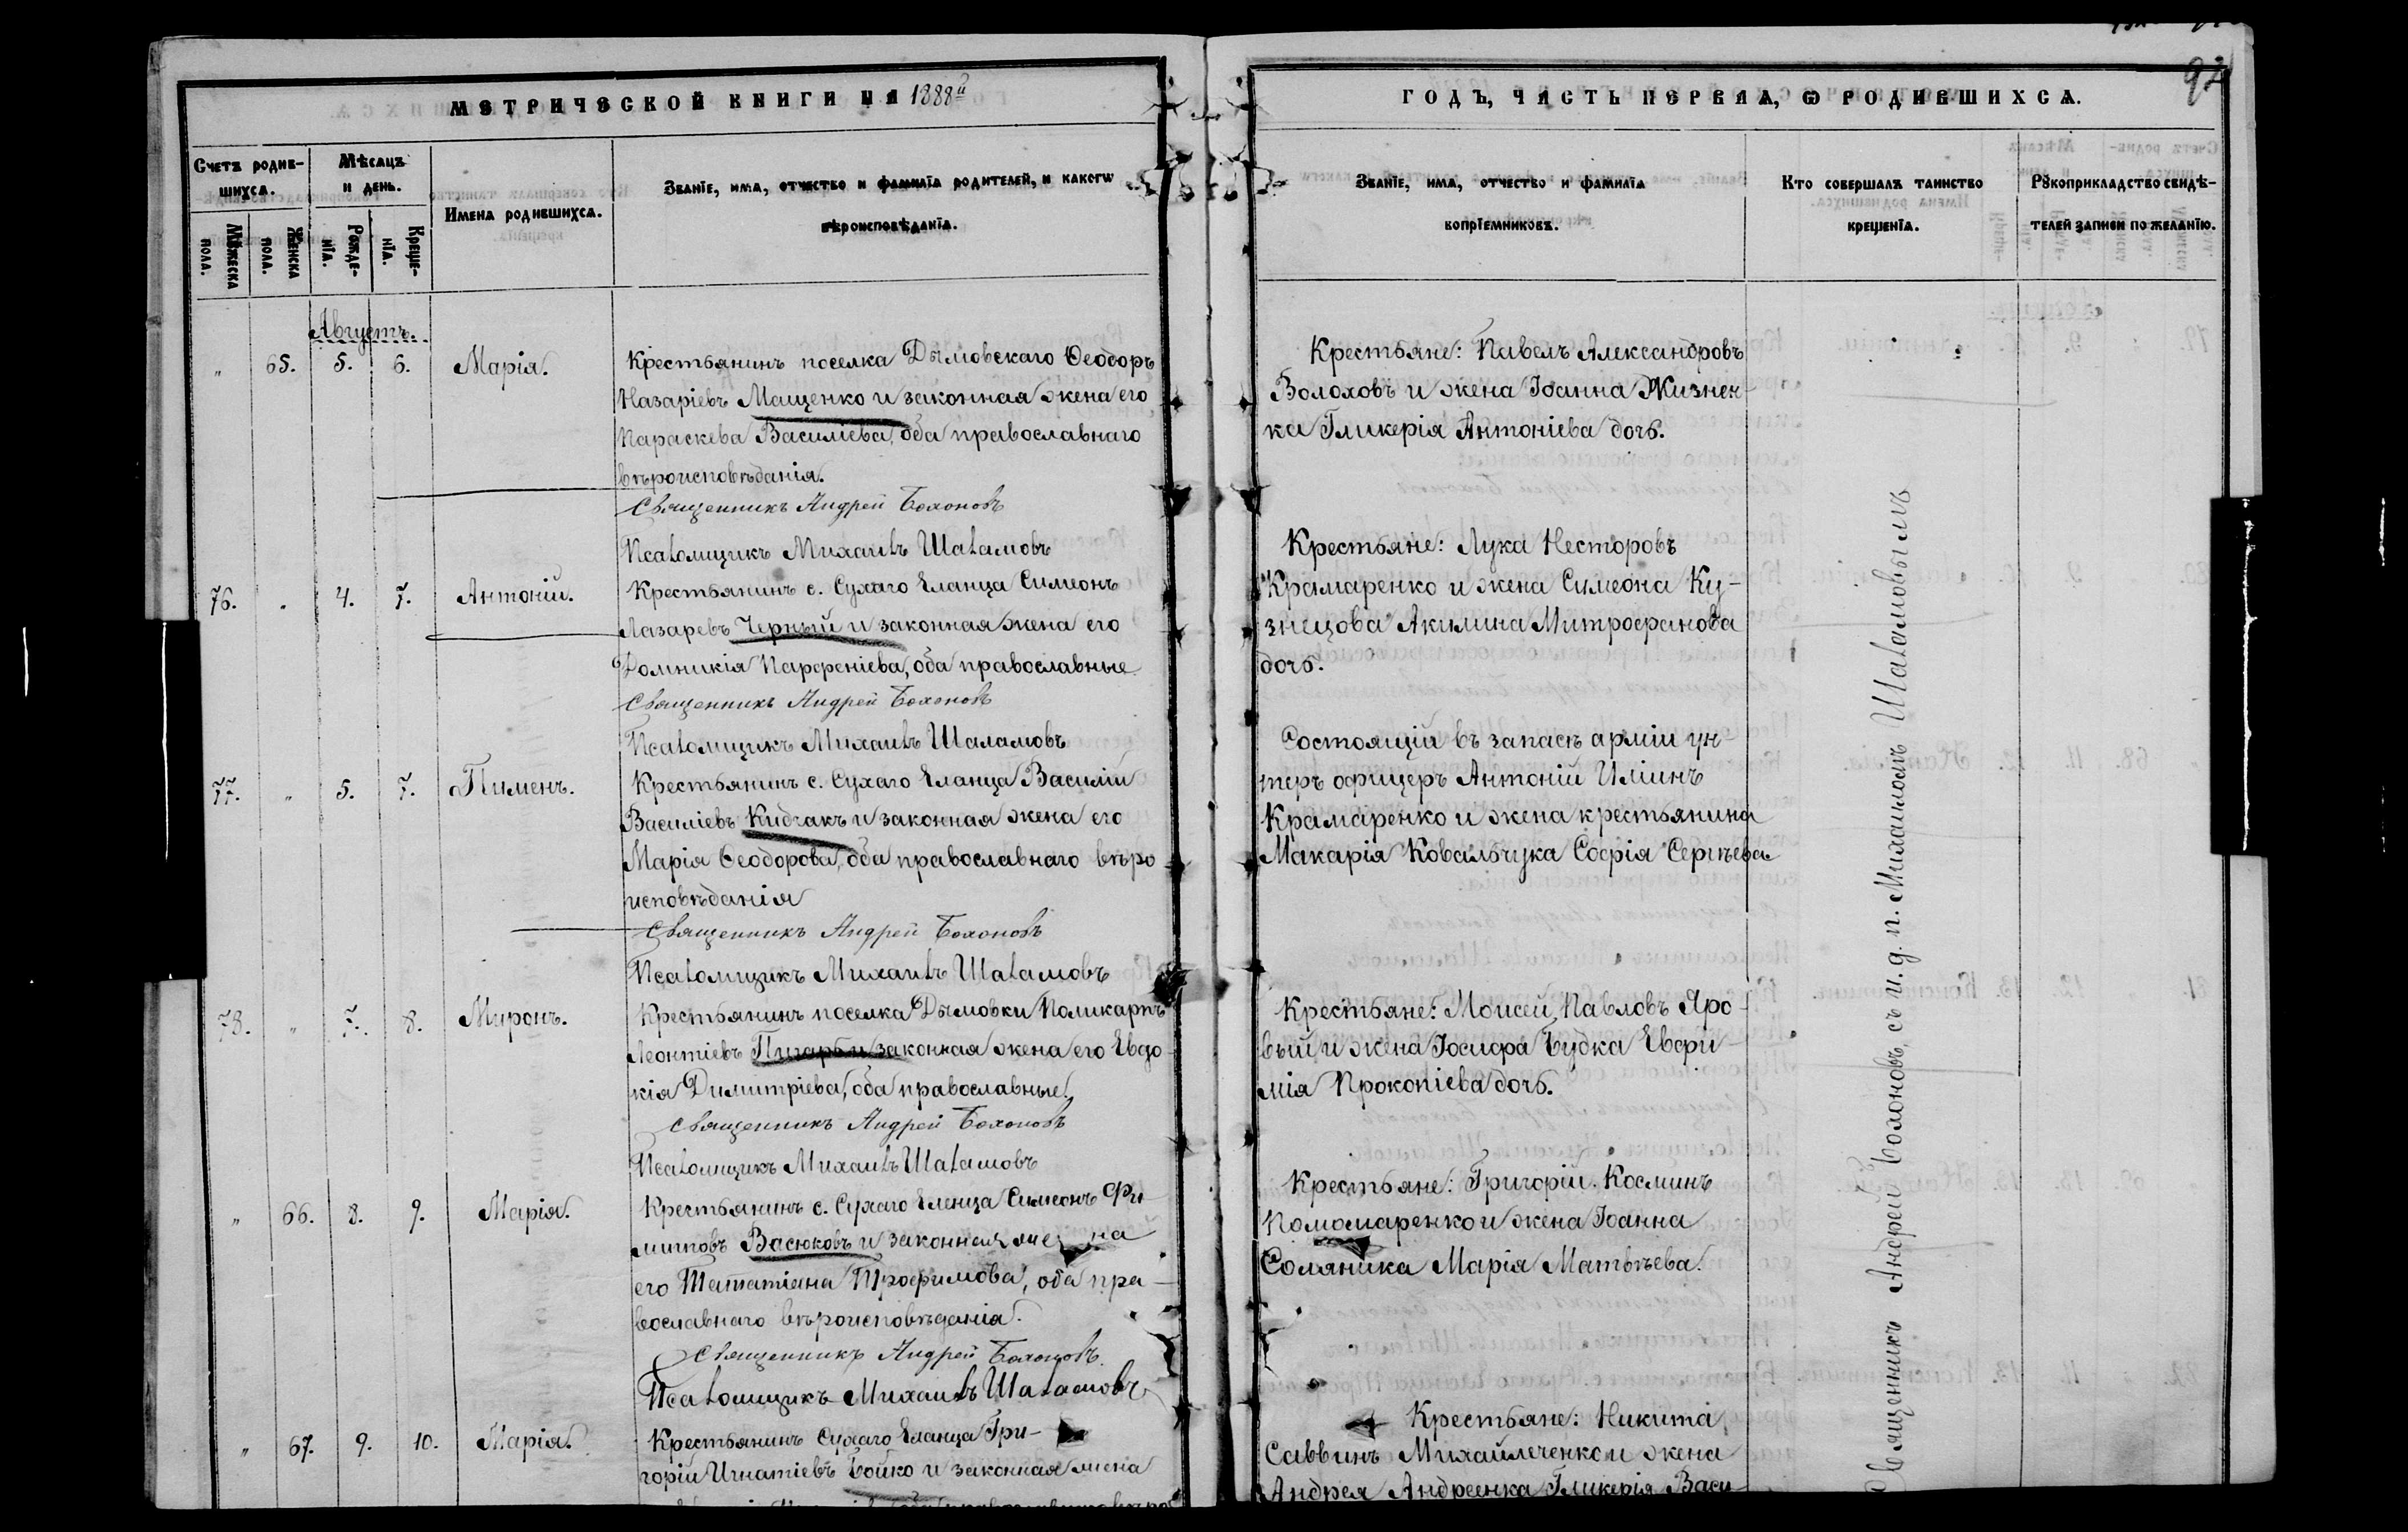 92
МЕТРИЧЕСКОЙ КНИГИ НА 1888й
ГОДЪ, ЧАСТЬ ПЕРВАѦ, Ѡ РОДИВШИХСѦ.
Счетъ родив-
шихсѧ.
Мѣсацъ
и день.
Имена родившихсѧ.
Званїе, имѧ, отчество и фамилїа родителей, и какогѡ
вѣроисповѣданїа.
Мꙋжеска
пола.
Женска
пола.
Рожде-
нїа.
Креще-
нїа.
Званїе, имѧ, отчество и фамилїа
воспрїемниковъ.
Кто совершалъ таинство
крещенїа.
Рꙋкоприкладство свидѣ-
телей записи по желанїю.
Августъ.
" 65. 5. 6. Марія.
Крестьянинъ поселка Дымовскаго Ѳеодоръ
Назаріевъ Мащенко и законная жена его
Параскева Василіева, оба православнаго
вѣроисповѣданія.
Священникъ Андрей Бохоновъ
Псаломщикъ Михаилъ Шаламовъ
Крестьяне: Павелъ Александровъ
Волоховъ и жена Іоанна Жизнен-
ка Гликерія Антоніева дочь.
76. " 4. 7. Антоній.
Крестьянинъ с. Сухаго Еланца Симеонъ
Лазаревъ Черный и законная жена его
Домникія Парфеніева, оба православные
Священникъ Андрей Бохоновъ
Псаломщикъ Михаилъ Шаламовъ
Крестьяне: Лука Несторовъ
Крамаренко и жена Симеона Ку-
знецова Акилина Митрофанова
дочь.
77. " 5. 7. Пименъ.
Крестьянинъ с. Сухаго Еланца Василій
Василіевъ Кидчакъ и законная жена его
Марія Ѳеодорова, оба православнаго вѣро
исповѣданія
Священникъ Андрей Бохоновъ
Псаломщикъ Михаилъ Шаламовъ
Состоящій въ запасѣ арміи ун-
теръ офицеръ Антоній Иліинъ
Крамаренко и жена крестьянина
Макарія Ковальчука Софія Сергѣева
78. " 7. 8. Миронъ.
Крестьянинъ поселка Дымовки Поликарпъ
Леонтіевъ Пигарь и законная жена его Евдо-
кія Димитріева, оба православные.
Священникъ Андрей Бохоновъ
Псаломщикъ Михаилъ Шаламовъ
Крестьяне: Моисей Павловъ Яро-
вый и жена Іосифа Будка Евфи-
мія Прокопіева дочь.
" 66. 8. 9. Марія.
Крестьянинъ с. Сухаго Еланца Симеонъ Фи
липовъ Васюковъ и законная жена
его Татіана Трофимова, оба пра-
вославнаго вѣроисповѣданія.
Священникъ Андрей Бохоновъ.
Псаломщикъ Михаилъ Шаламовъ
Крестьяне: Григорій Косминъ
Поломаренко и жена Іоанна
Соляника Марія Матвѣева.
" 67. 9. 10. Марія.
Крестьянинъ Сухаго Еланца Гри-
горій Игнатіевъ Бойко и законная жена
Крестьяне: Никита
Саввинъ Михайлеченко и жена
Андрея Андреенка Гликерія Васи-
Священникъ Андрей Бохоновъ, съ и. д. п. Михаиломъ Шаламовымъ